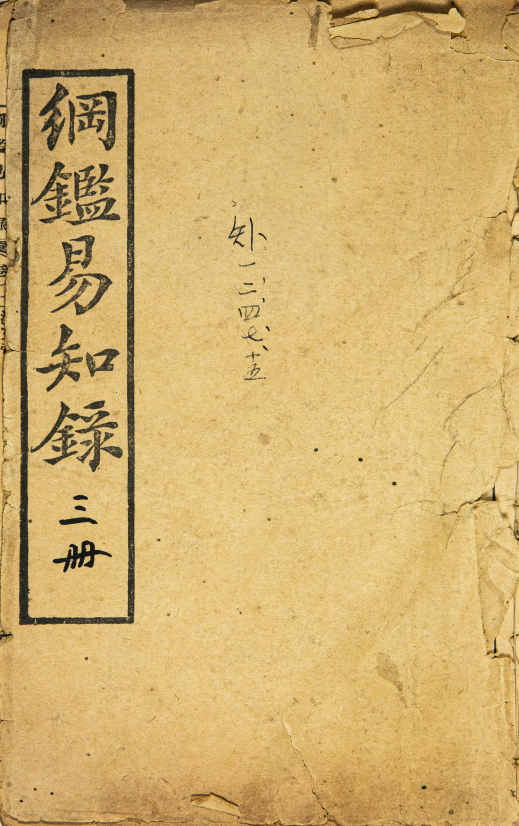 綱鑑易知錄
三册
一、二、四、七、十五